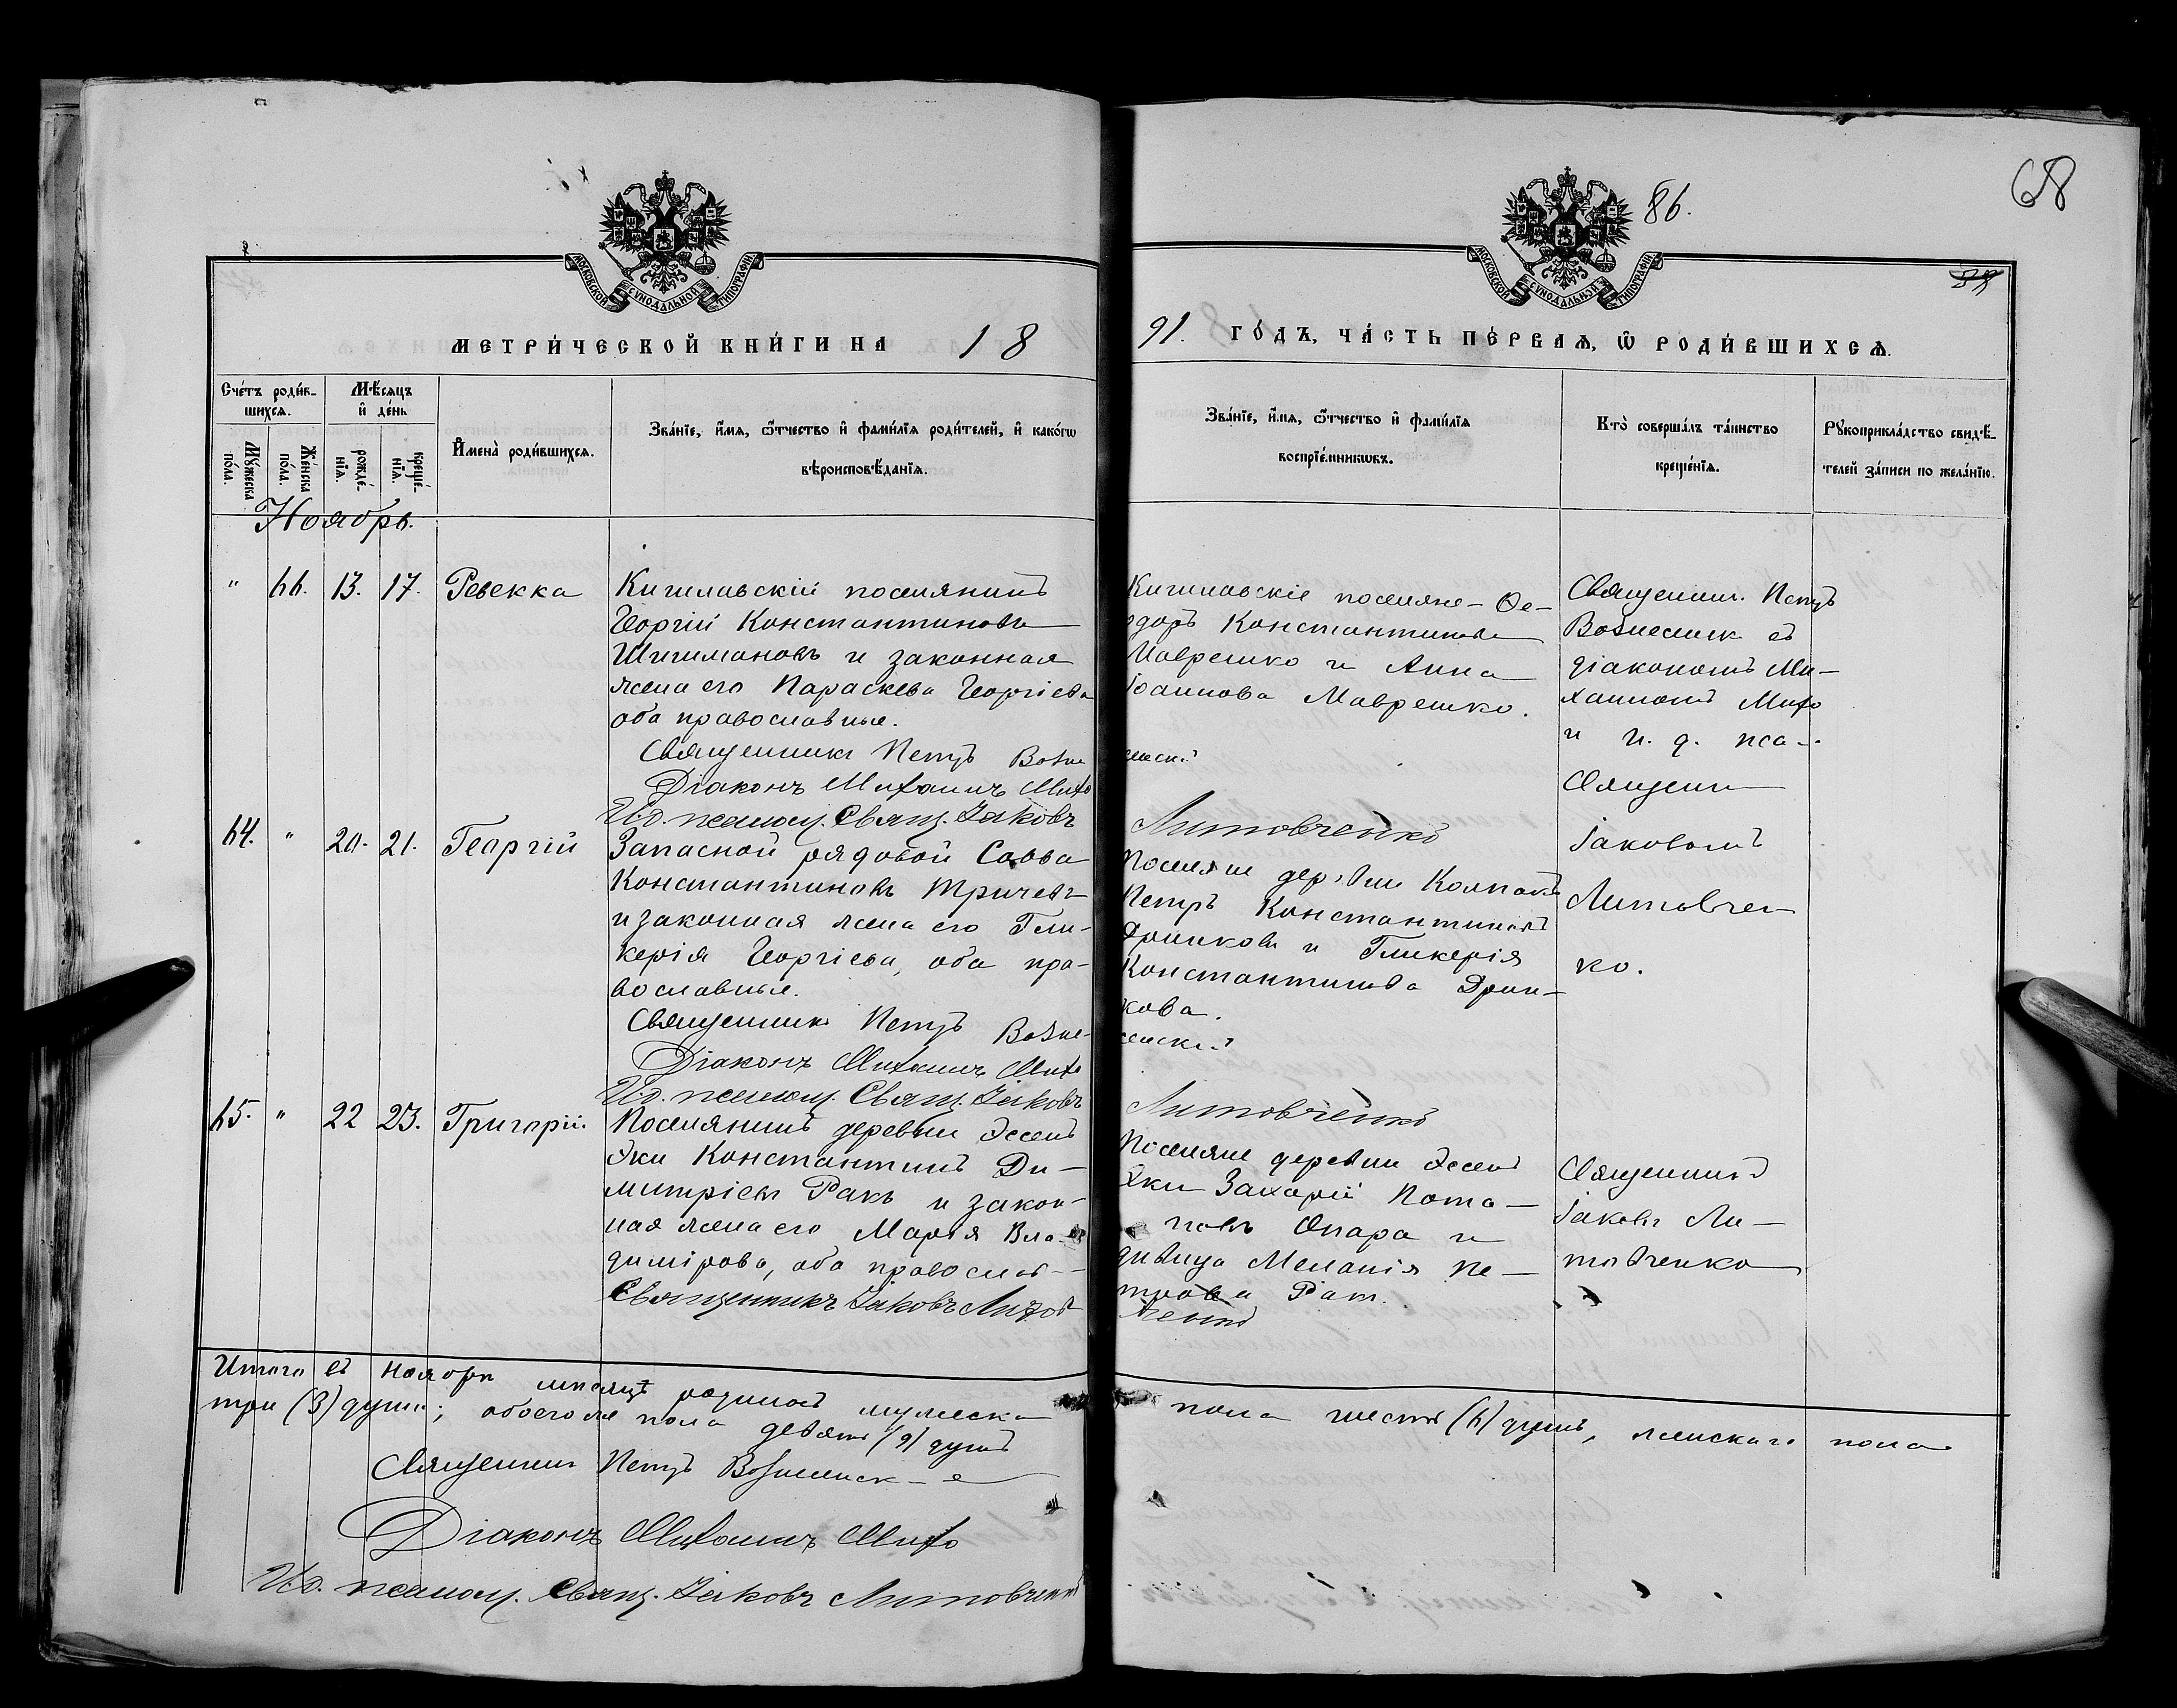 86.
68
МОСКОВСКОЙ СѴНОДАЛЬНОЙ ТИПОГРАФІИ
МОСКОВСКОЙ СѴНОДАЛЬНОЙ ТИПОГРАФІИ
МЕТРИ́ЧЕСКОЙ КНИ́ГИ НА 18
91. ГО́ДЪ, ЧА́СТЬ ПЕ́РВАѦ, Ѡ҆ РОДИ́ВШИХСѦ.
Сче́тъ роди́в-
шихсѧ.
Мꙋ́жеска по́ла.
Же́нска по́ла.
Мѣ́сѧцъ
и҆ де́нь
рожде́-
нїѧ.
креще́-
нїѧ.
И҆мена̀ роди́вшихсѧ.
Зва́нїе, и҆́мѧ, ѻ҆́тчество и҆ фами́лїѧ роди́телей, и҆ како́гѡ
вѣроисповѣ́данїѧ.
Зва́нїе, и҆́мѧ, ѻ҆́тчество и҆ фами́лїѧ
воспрїе́мникѡвъ.
Кто̀ соверша́лъ та́инство
креще́нїѧ.
Рꙋкоприкла́дство свидѣ́-
телей за́писи по жела́нїю.
Ноябрь.
" 66. 13. 17. Ревекка
Георгій Константиновъ
Шишмановъ и законная
жена его Параскева Георгіева
оба православные.
Священникъ Петръ Возне
Діаконъ Михаилъ Михо
И.д. псаломщ. Свящ. Іаковъ
поселяне – Ѳе-
одоръ Константиновъ
Маврешко и Анна
Іоаннова Маврешко.
сенскій
Литовченко
Священник. Петръ
Вознесенск съ
діакономъ Ми-
хаиломъ Михо
и и. д. пса-
Священ
Іаковомъ
Литовчен
ко.
64. " 20. 21. Георгій
Запасной рядовой Савва
Константиновъ Тричевъ
и законная жена его Гли-
керія Георгіева, оба пра-
вославные.
Священникъ Петръ Возне-
Діаконъ Михаилъ Михо
И.д. псаломщ. Свящ. Іаковъ
Поселяне деревни Колпакъ
Петръ Константиновъ
и Гликерія
Константинова Дрин-
кова.
сенскій
Литовченко
65. " 22 23. Григорій.
Поселянинъ деревни Эссенъ
Эки Константинъ Ди-
митріевъ Ракъ и закон-
ная жена его Марія Вла-
димірова, оба православ-
Священникъ Іаковъ Литов
Поселяне деревни Эссенъ
Эки Захарій Пота-
повъ Опара и
дѣвица Меланія Пе-
трова Ракъ.
ченко
Священникъ
Іаковъ Ли-
товченко
Итого въ Ноябрѣ мѣсяцѣ родилось мужеска пола шесть (6) душъ, женскаго пола
три (3) души; обоего же пола девять (9) душъ
Священник Петръ Вознесенск-й
Діаконъ Михаилъ Михо
И.д. псаломщ. Свящ. Іаковъ Литовченко